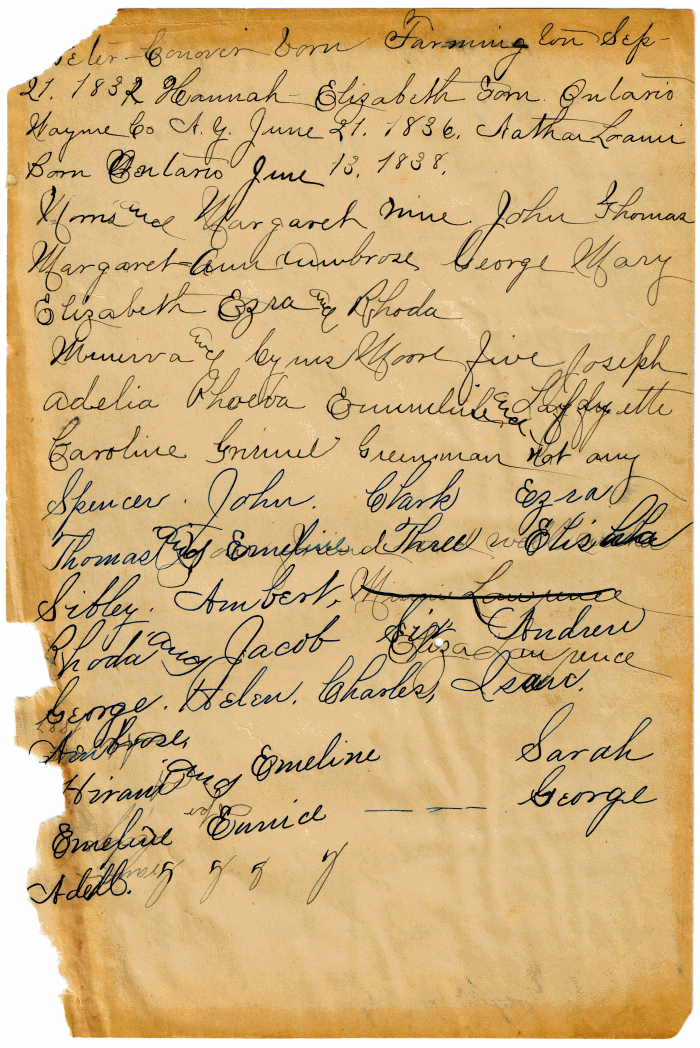 Peter Conover born Farmington Sep-
21. 1832 Hannah Elizabeth Born Ontario
Wayne Co N.Y. June 21. 1836. Nathan Loami
Born Ontario June 13. 1838.
Morris and Margaret nine. John Thomas
Margaret Ann Ambrose George Mary
Elizabeth Ezra and Rhoda
Minerva and Cyrus Moore five Joseph
Adelia Phoeba Emmeline and Laffyette
Caroline Grinnel Greenman Not any
Spencer. John. Clark Ezra
Thomas and Emeline Three Elisha
Sibley. Ambert. Lawrence
Rhoda and Jacob Six Andrew
Eliza Lawrence
George. Helen. Charles, Isaac.
Ambrose,
Hiram and Emeline Sarah
Emeline Eunice — — — George
Adell.